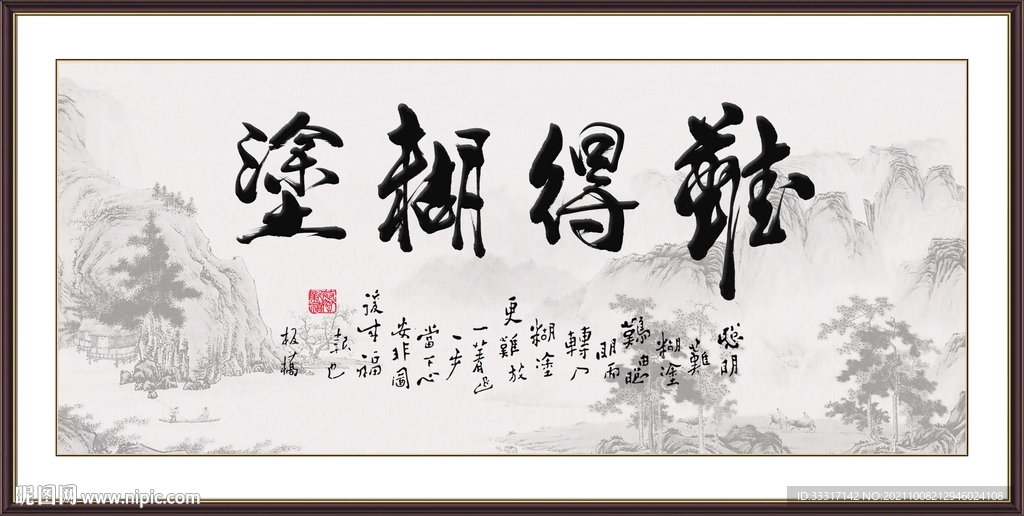 難得糊塗
聰明
難
糊塗
難由聰
明而
轉入
糊塗
更難放
一著退
一步
當下心
安非圖
後来福
報也
板橋
昵图网 www.nipic.com
ID:33317142 NO:20211008212946024108